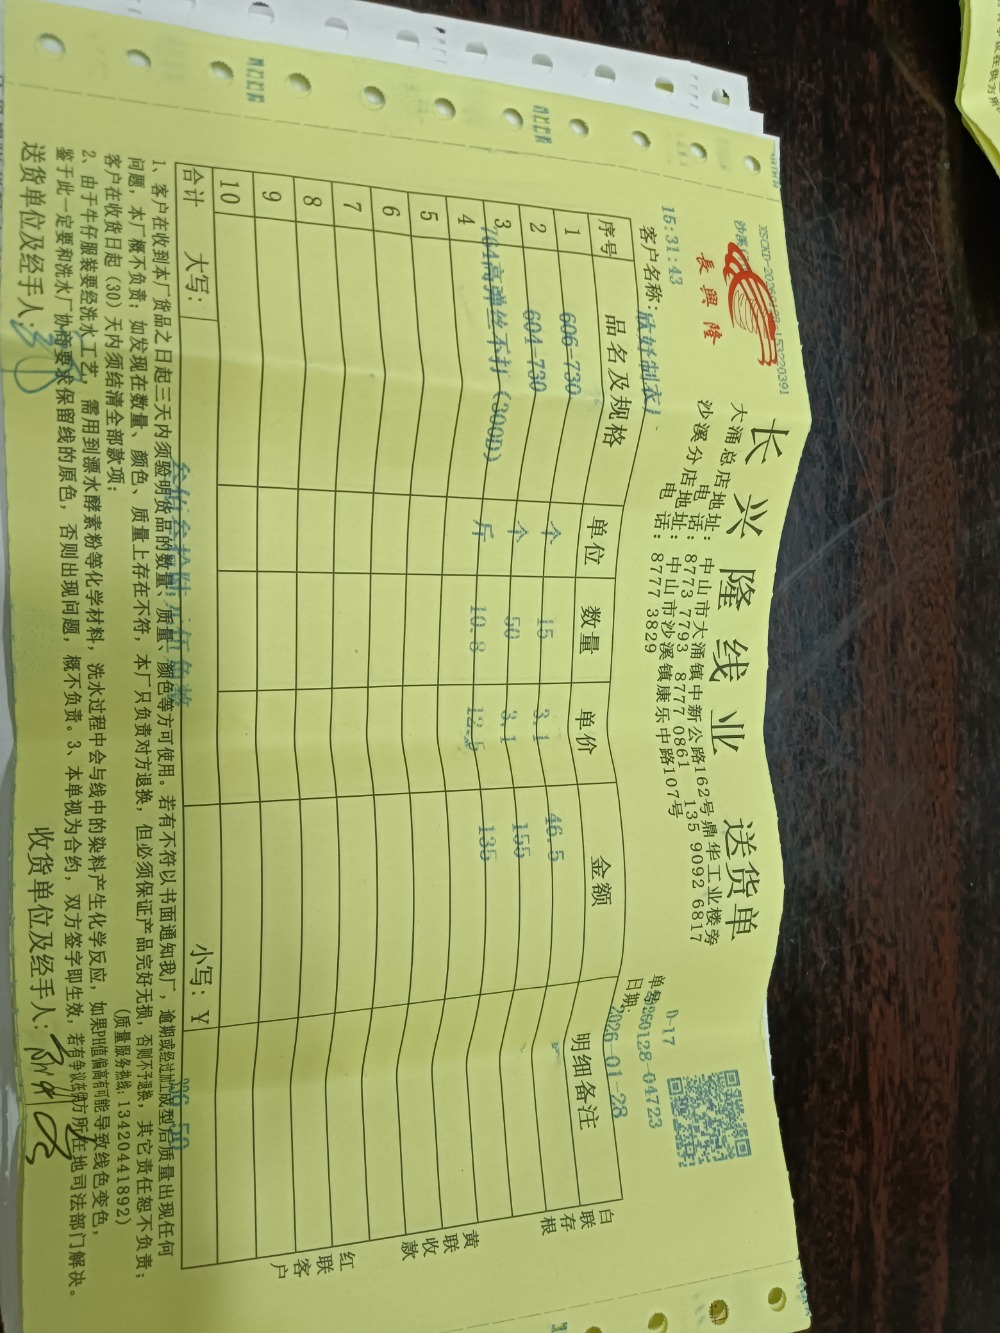 長興隆
长兴隆线业 送货单
大涌总店地址: 中山市大涌镇中新公路162号鼎华工业楼旁
电 话: 8773 7793 8777 0861 135 9092 6817
沙溪分店地址: 中山市沙溪镇康乐中路107号
电 话: 8777 3829
D-17
单号: 260128-04723
日期: 2026-01-28
15:31:43
客户名称: 欣妤制衣厂
序号 品名及规格 单位 数量 单价 金额 明细备注
1 606-730 个 15 3.1 46.5
2 604-730 个 50 3.1 155
3 704高弹丝不打(300D) 斤 10.8 12.5 135
4
5
6
7
8
9
10
合计 大写: 叁佰叁拾陆元伍角整 小写: ¥ 336.50
白联存根
黄联收款
红联客户
1、客户在收到本厂货品之日起三天内须验明货品的数量、质量、颜色等方可使用。若有不符以书面通知我厂，逾期或经过加工成型后质量出现任何
问题，本厂概不负责；如发现在数量、颜色、质量上存在不符，本厂只负责对方退换，但必须保证产品完好无损，否则不予退换，其它责任恕不负责；
客户在收货日起（30）天内须结清全部款项；
(质量服务热线: 13420441892)
2、由于牛仔服装要经洗水工艺，需用到漂水酵素粉等化学材料，洗水过程中会与线中的染料产生化学反应，如果PH值偏高有可能导致线色变色，
鉴于此一定要和洗水厂协商要求保留线的原色，否则出现问题，概不负责。3、本单视为合约，双方签字即生效，若有争议在供方所在地司法部门解决。
送货单位及经手人:
收货单位及经手人: